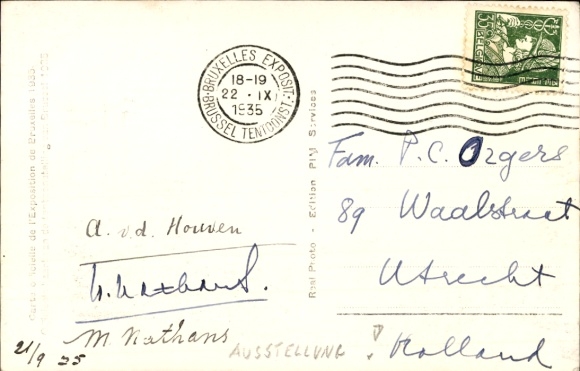 35c
BELGIQUE
BRUXELLES EXPOSIT.
18-19
22 · IX
1935
BRUSSEL TENTOONST.
Carte officielle de l'Exposition de Bruxelles 1935
Real Photo - Edition PIM Services
Fam. P.C. Orgers
89 Waalstraat
Utrecht
Holland
A. v.d. Houven
M Nathans
21/9 35
AUSSTELLUNG